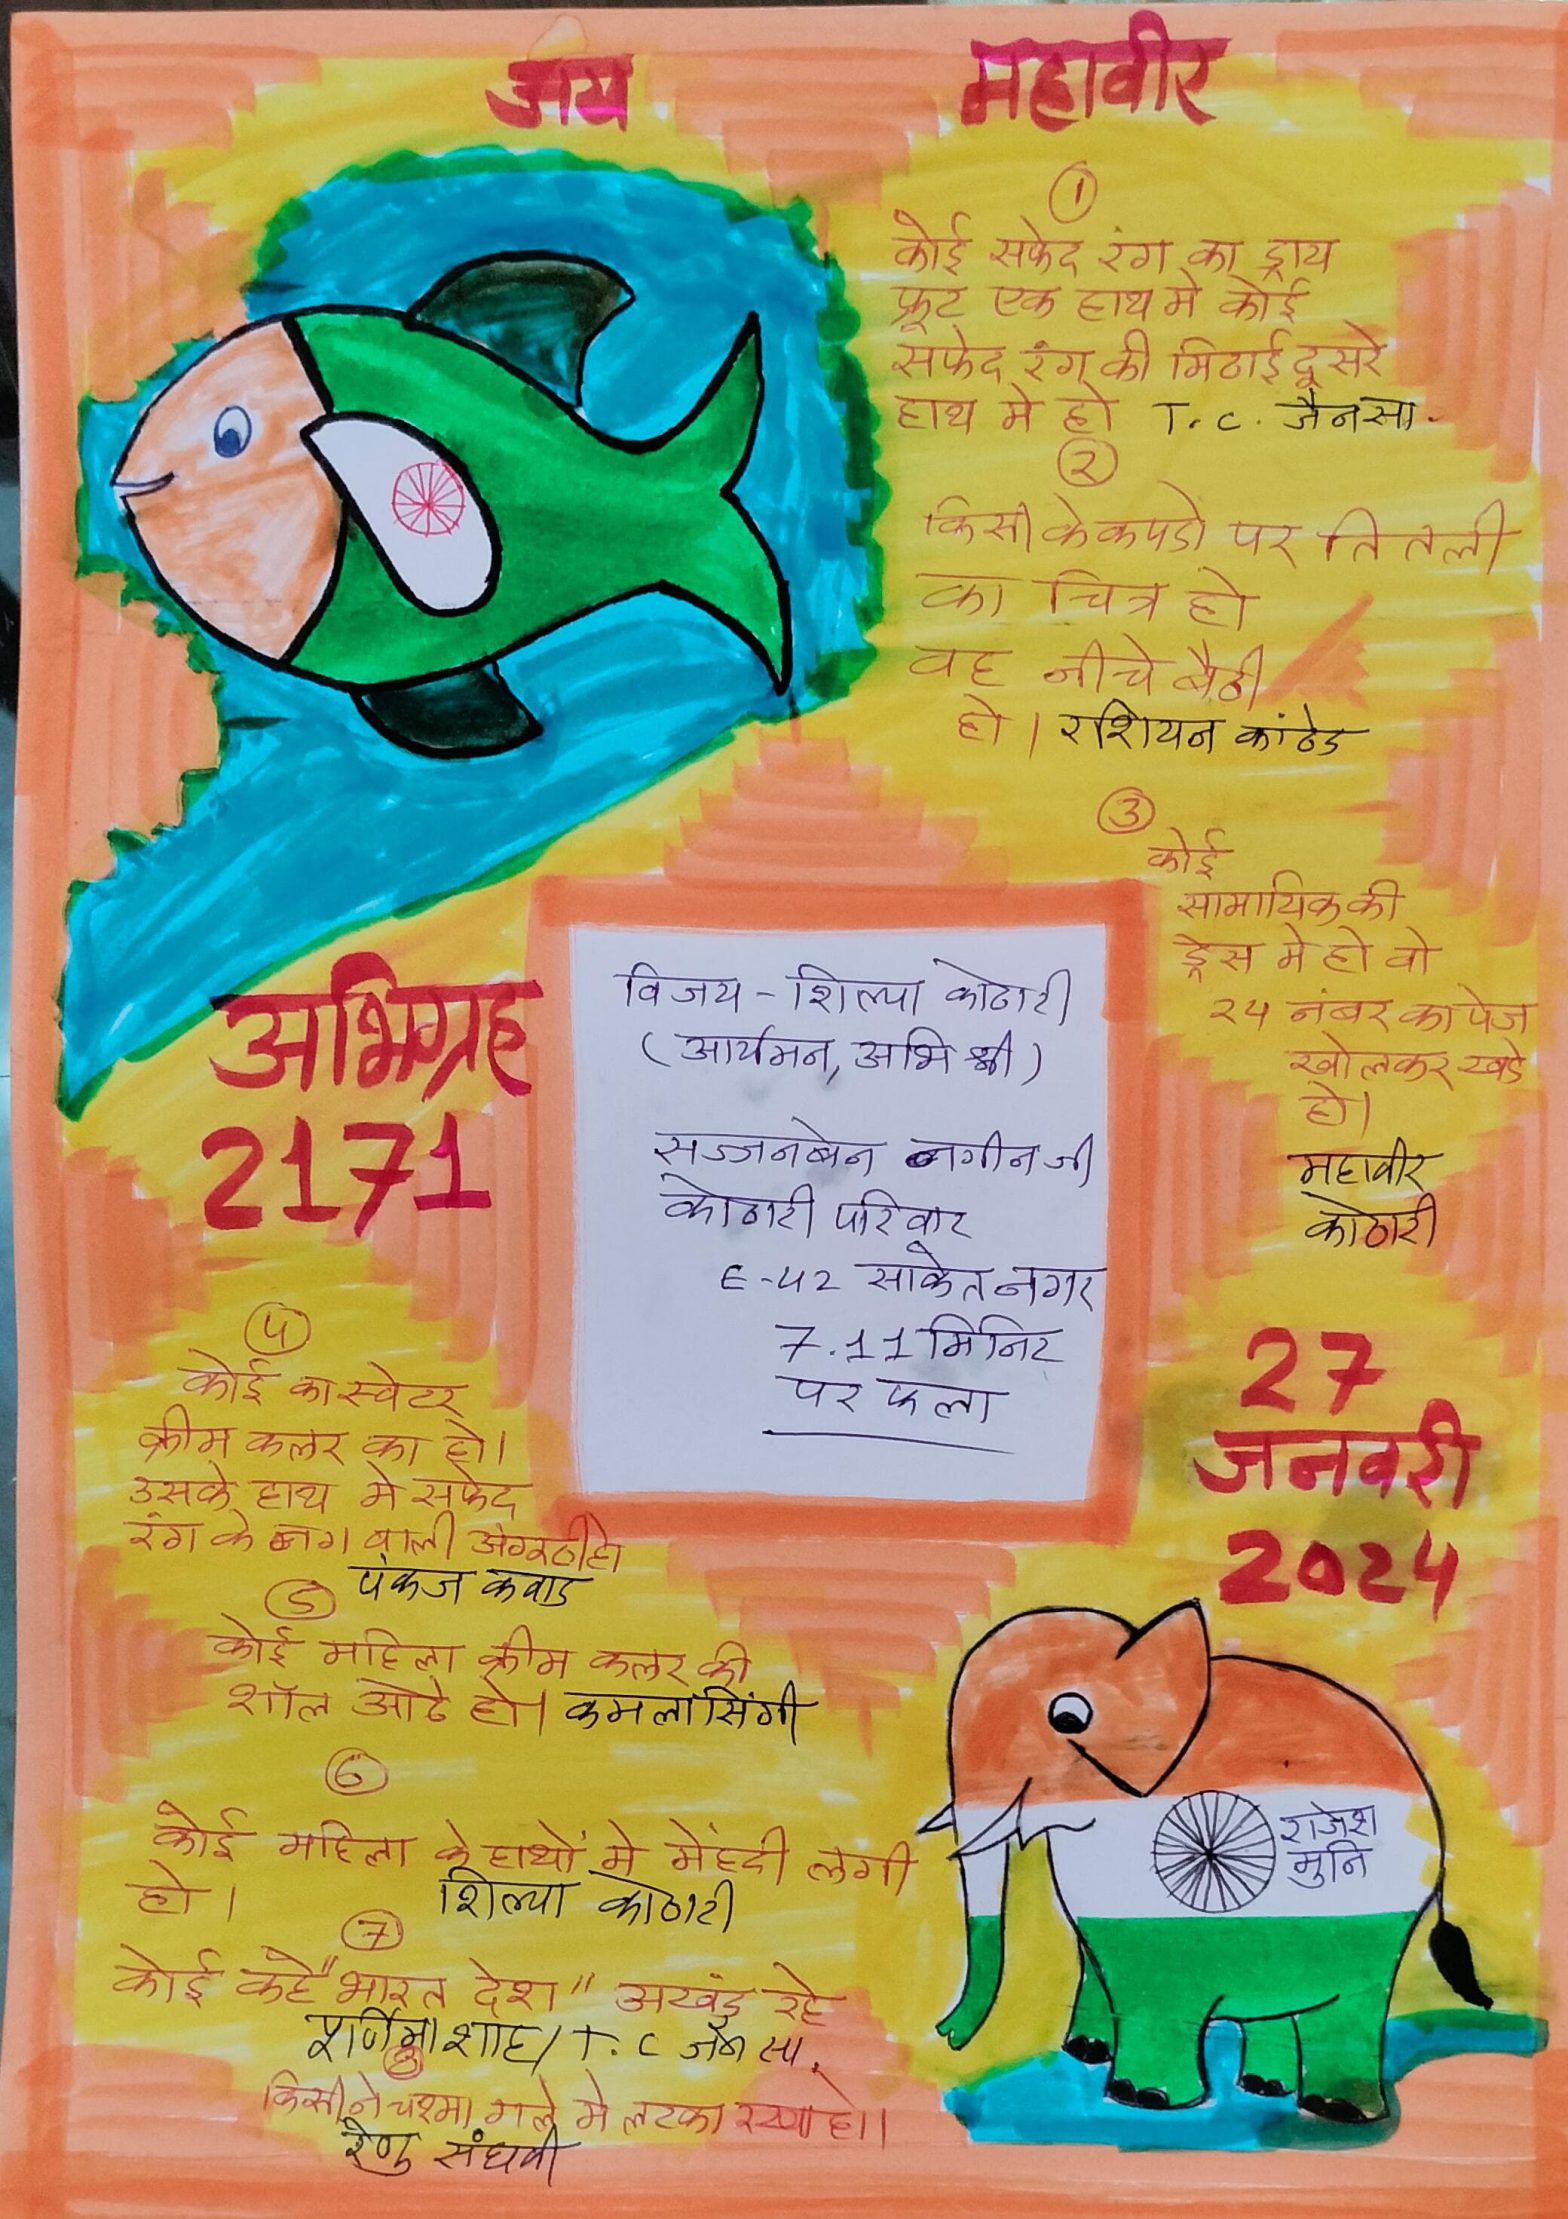 जय महावीर
①
कोई सफेद रंग का ड्राय
फ्रूट एक हाथ मे कोई
सफेद रंग की मिठाई दूसरे
हाथ मे हो T. C. जैनसा.
②
किसी के कपडो पर तितली
का चित्र हो
वह नीचे बैठी
हो। रशियन कांठेड
③
कोई
सामायिक की
ड्रेस मे हो वो
24 नंबर का पेज
खोलकर खडे
हो।
महावीर
कोठारी
अभिग्रह
2171
विजय - शिल्पा कोठारी
(आर्यमन, अभिश्री)
सज्जनबेन नगीनजी
कोठारी परिवार
E-42 साकेत नगर
7.11 मिनिट
पर फला
27
जनवरी
2024
④
कोई का स्वेटर
क्रीम कलर का हो।
उसके हाथ मे सफेद
रंग के नग वाली अंगूठी हो
पंकज कवाड
⑤
कोई महिला क्रीम कलर की
शॉल ओढे हो। कमला सिंगी
⑥
कोई महिला के हाथों मे मेंहदी लगी
हो। शिल्पा कोठारी
⑦
कोई कहे "भारत देश" अखंड रहे
पूर्णिमा शाह / T. C जैन सा.
⑧
किसी ने चश्मा गले मे लटका रखा हो।
रेणु संघवी
राजेश
मुनि